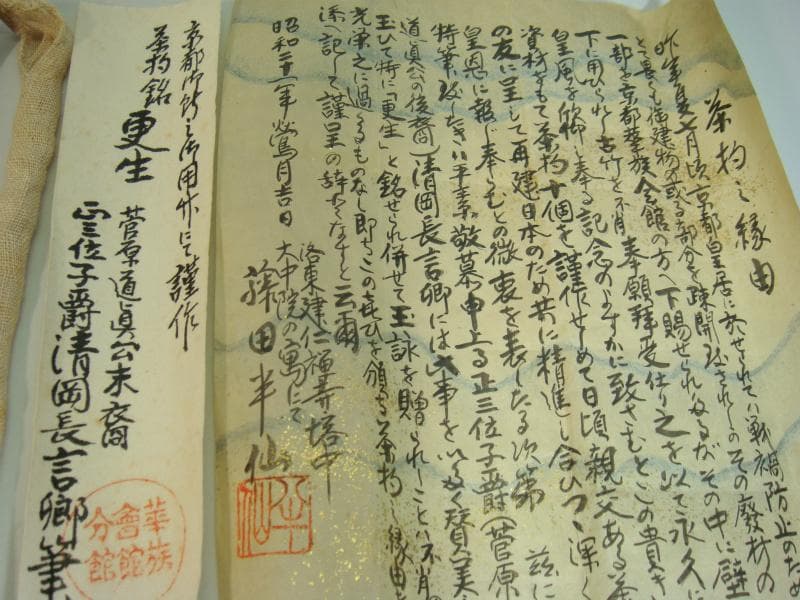 茶杓之縁由
昨年夏七月頃京都皇居に於せられてハ戦禍防止のため
とて畏くも御建物の或る部分を疎開致されしのその廃材の
一部を京都華族会館の方へ下賜せられたるがその中に壁
下に用ひられし古竹を不肖奉願拝受仕り之を以て永久に
皇風を欽仰し奉る記念のよすがに致さむとこの貴き
資材をもて茶杓十個を謹作せしめて日頃親交ある茶
の友に呈して再建日本のため共に精進し合ひつゝ深く
皇恩に報じ奉らむとの微衷を表したる次第 茲に
特筆致したきハ平素敬慕申上る正三位子爵(菅原
道眞公の後裔)清岡長言卿には此事をいたく賛美
玉ひて特に「更生」と銘せられ併せて玉詠を贈られしことハ不肖の
光栄之に過るものなし即ちこの喜びを頒る茶杓之縁由
添へ記して謹呈の辞となすと云爾
昭和二十一年鶯月吉日
洛東建仁禅寺塔中
大中院の寓にて
藤田半仙
半仙
京都御所之御用竹にて謹作
茶杓銘 更生
菅原道眞公末裔
正三位子爵清岡長言卿筆
華族
會館
分館